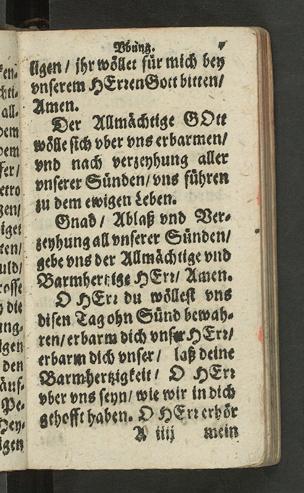 Vbung.
ligen / ihr wöllet für mich bey
vnserem HErren Gott bitten /
Amen.
Der Allmächtige GOtt
wölle sich vber vns erbarmen /
vnd nach verzeyhung aller
vnserer Sünden / vns führen
zu dem ewigen Leben.
Gnad / Ablaß vnd Ver-
zeyhung all vnserer Sünden /
gebe vns der Allmächtige vnd
Barmhertzige HErr / Amen.
O HErr du wöllest vns
disen Tag ohn Sünd bewah-
ren / erbarm dich vnser HErr /
erbarm dich vnser / laß deine
Barmhertzigkeit / O HErr
vber vns seyn / wie wir in dich
gehofft haben. O HErr erhör
A iiij mein